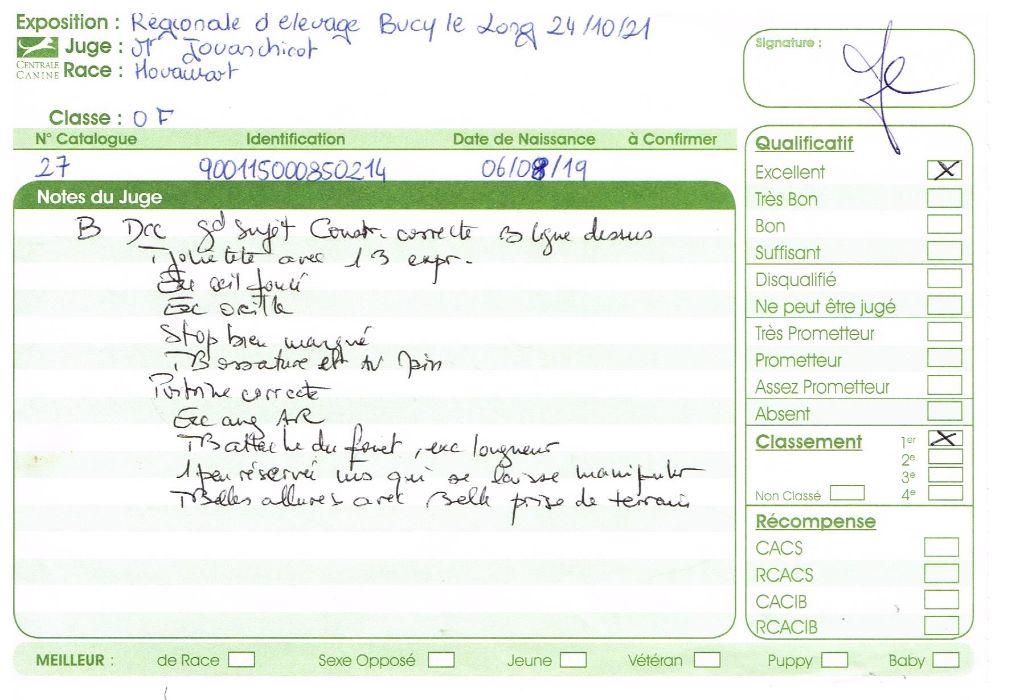 Exposition : Régionale d'élevage Bucy le Long 24/10/21
Juge : Mr Jouanchicot
CENTRALE CANINE
Race : Hovawart
Signature :
Classe : OF
N° Catalogue Identification Date de Naissance à Confirmer
27 900115000850214 06/08/19
Notes du Juge
B Dcc gd sujet Constr. correcte B ligne dessus
T jolie tête avec 1 B expr.
Exc œil foncé
Exc oreille
Stop bien marqué
TB ossature et
Poitrine correcte
Exc ang AR
TB attache du fouet, exc longueur
1 peu réservée ms qui se laisse manipuler
TBelles allures avec Belle prise de terrain
Qualificatif
Excellent X
Très Bon
Bon
Suffisant
Disqualifié
Ne peut être jugé
Très Prometteur
Prometteur
Assez Prometteur
Absent
Classement 1er X
2e
3e
Non Classé 4e
Récompense
CACS
RCACS
CACIB
RCACIB
MEILLEUR : de Race Sexe Opposé Jeune Vétéran Puppy Baby